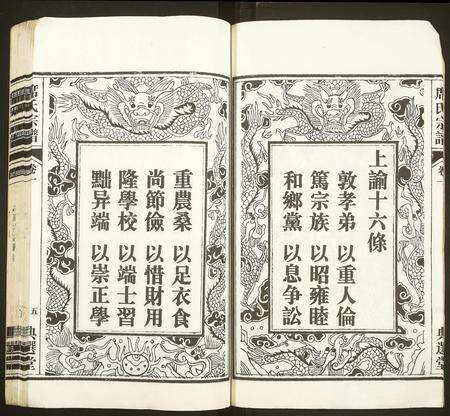 上諭十六條
敦孝弟 以重人倫
篤宗族 以昭雍睦
和鄉黨 以息争訟
重農桑 以足衣食
尚節儉 以惜財用
隆學校 以端士習
黜异端 以崇正學
席氏宗譜
卷一
典選堂
席氏宗譜
卷一
五
典選堂